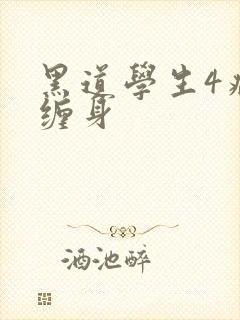 黑道學生4
缠身
酒池醉